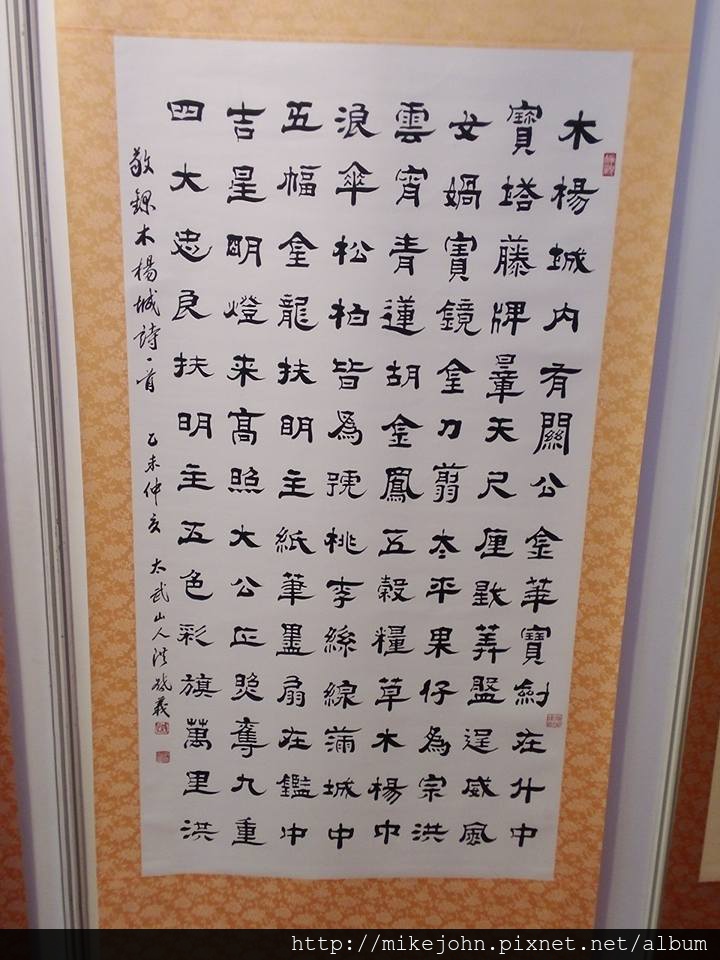 木楊城内有關公金華寶劍在廾中
寶塔藤牌暈天尺厘戥算盤逞威風
女媧寶鏡金刀剪太平果仔為宗洪
雲霄青蓮胡金鳳五穀糧草木楊中
浪傘松柏皆為號桃李絲線蒲城中
五幅金龍扶明主紙筆墨扇在鑑中
吉星明燈来高照大公正斃奪九重
四大忠良扶明主五色彩旗萬里洪
敬錄木楊城詩一首 乙未仲亥 太武山人洪啟義
http://mikejohn.pixnet.net/album